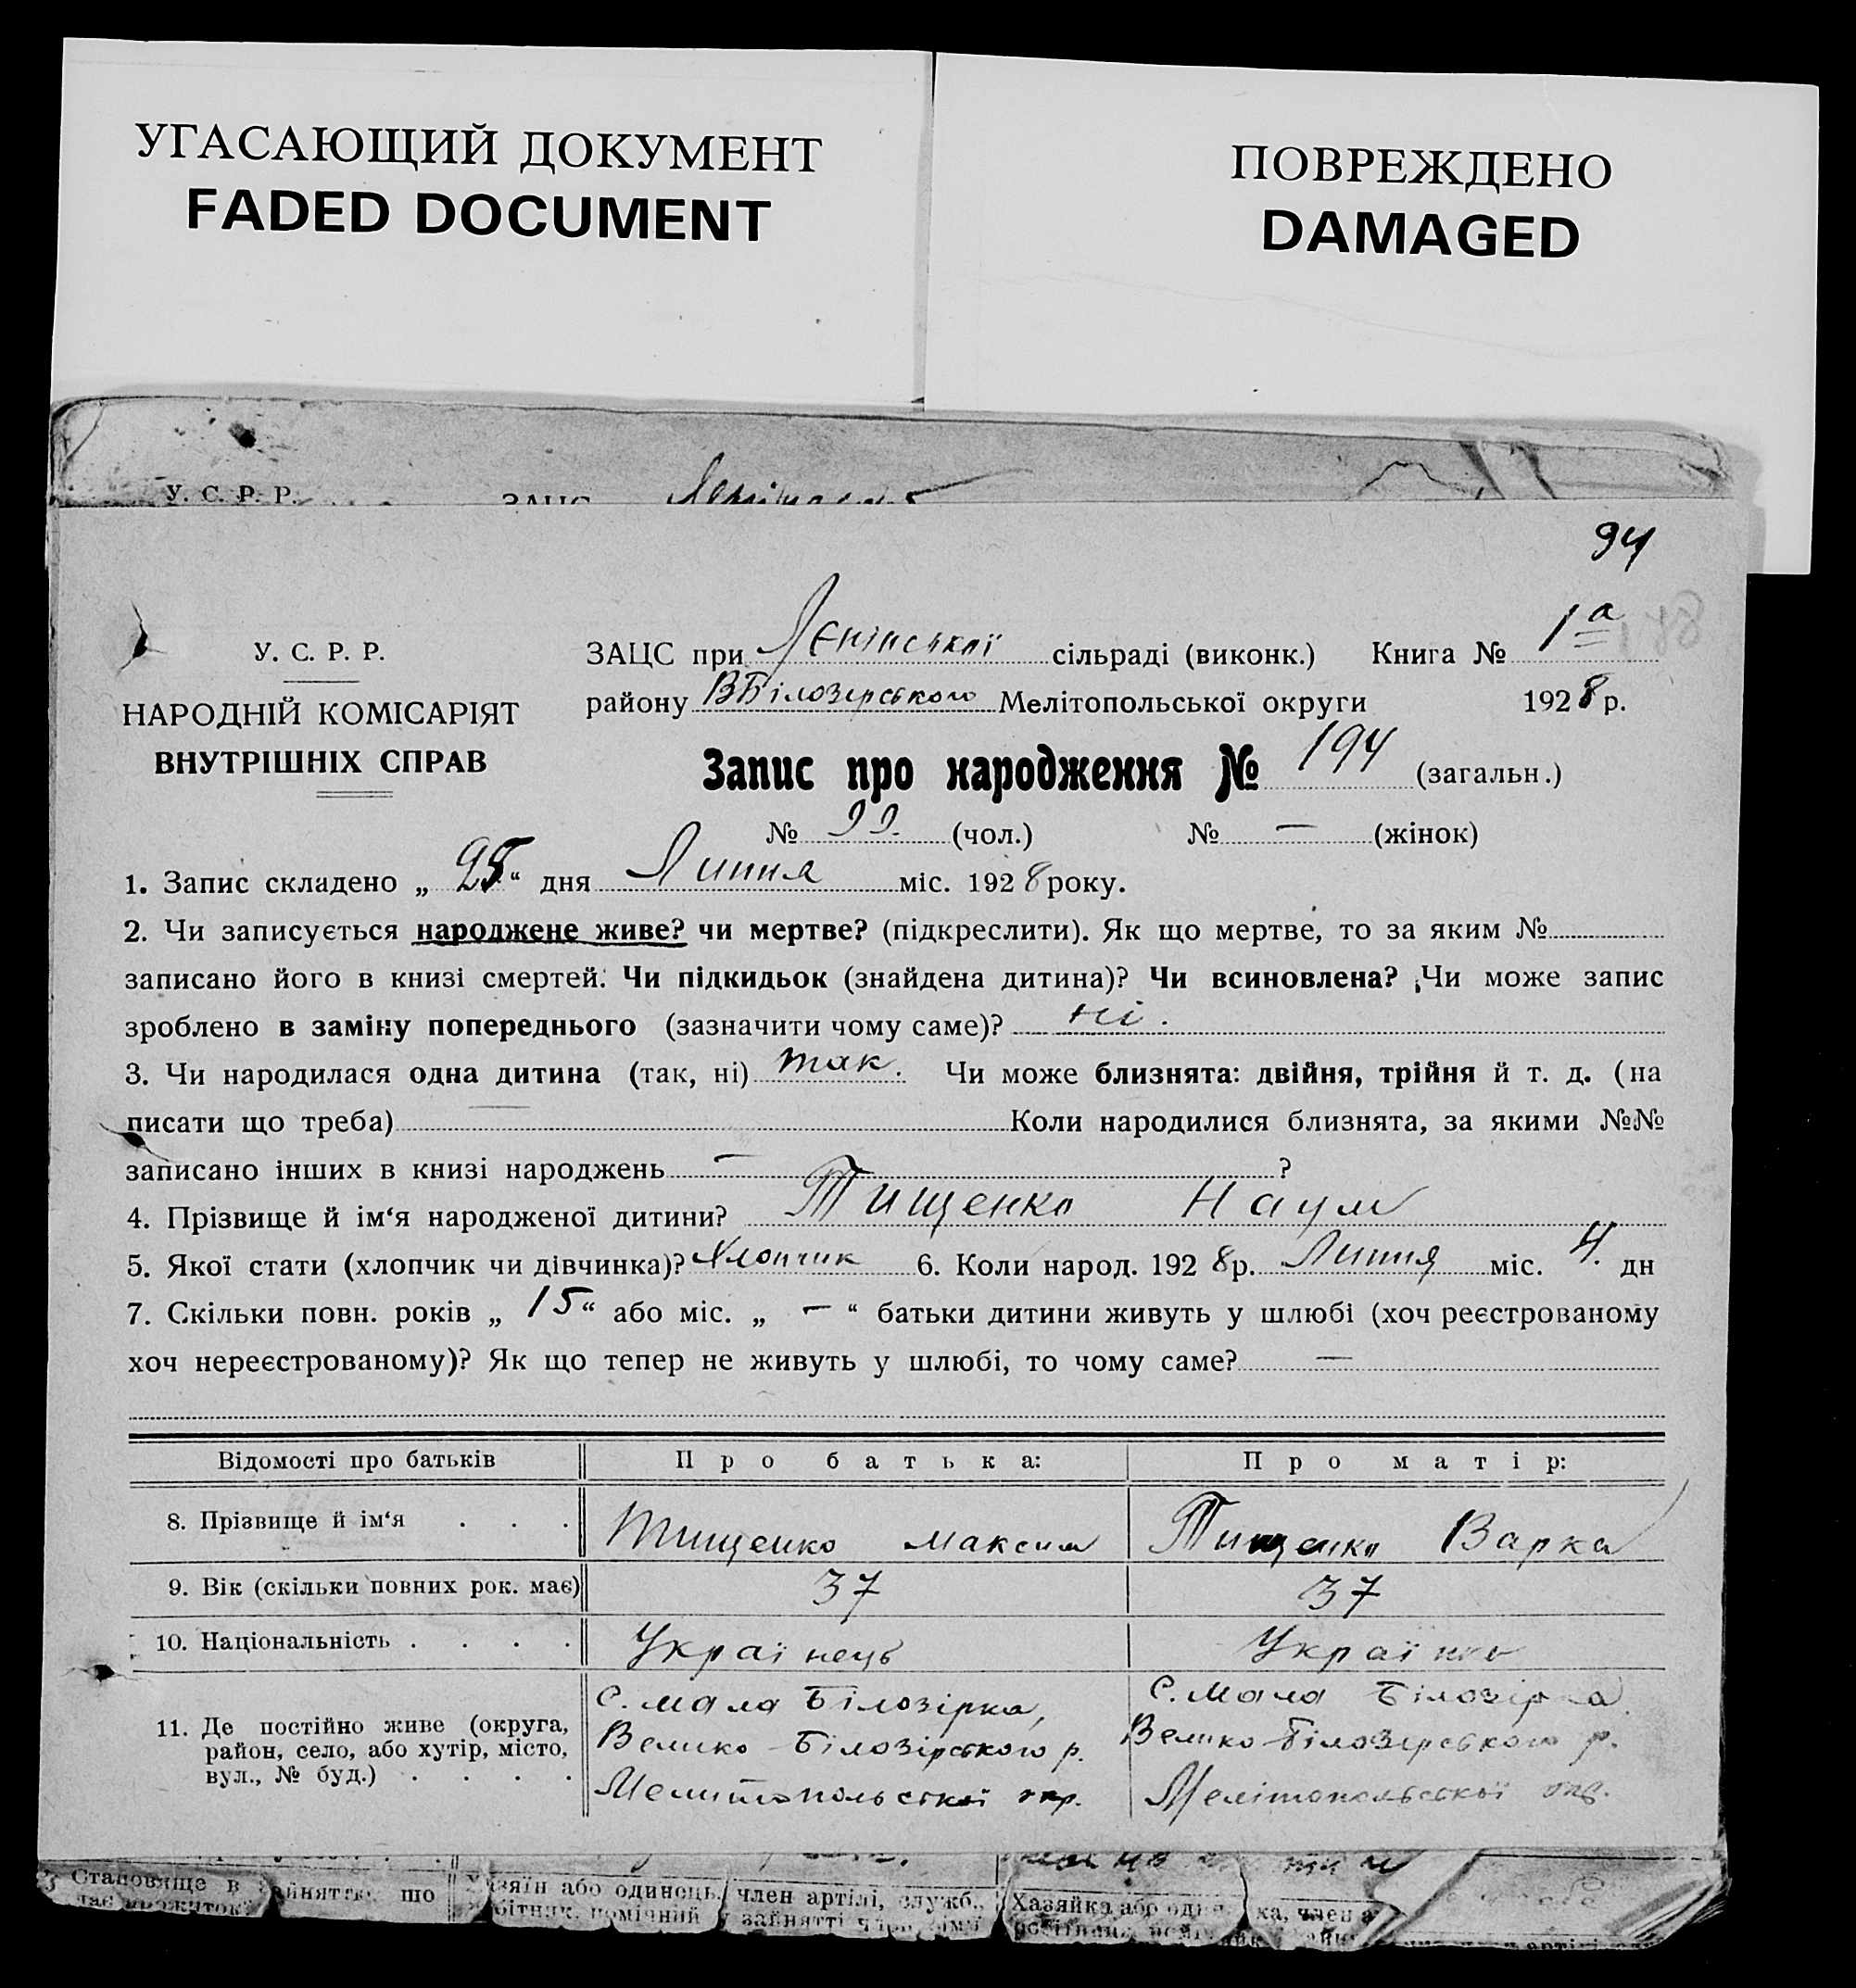 УГАСАЮЩИЙ ДОКУМЕНТ
FADED DOCUMENT
ПОВРЕЖДЕНО
DAMAGED
У. С. Р. Р.
ЗАЦС
94
У. С. Р. Р.
НАРОДНІЙ КОМІСАРІЯТ
ВНУТРІШНІХ СПРАВ
ЗАЦС при Лєнінської сільраді (виконк.) Книга № 1а
району ВБілозерського Мелітопольської округи 1928 р.
Запис про народження № 194 (загальн.)
№ 99. (чол.) № — (жінок)
1. Запис складено „ 25 “ дня Липня міс. 1928 року.
2. Чи записується народжене живе? чи мертве? (підкреслити). Як що мертве, то за яким №
записано його в книзі смертей. Чи підкидьок (знайдена дитина)? Чи всиновлена? Чи може запис
зроблено в заміну попереднього (зазначити чому саме)? ні.
3. Чи народилася одна дитина (так, ні) так. Чи може близнята: двійня, трійня й т. д. (на
писати що треба) — Коли народилися близнята, за якими №№
записано інших в книзі народжень — ?
4. Прізвище й ім‘я народженої дитини? Тищенко Наум
5. Якої стати (хлопчик чи дівчинка)? Хлопчик 6. Коли народ. 1928 р. Липня міс. 4. дн
7. Скільки повн. років „ 15 “ або міс. „ — “ батьки дитини живуть у шлюбі (хоч реєстрованому
хоч нереєстрованому)? Як що тепер не живуть у шлюбі, то чому саме? —
Відомості про батьків Про батька: Про матір:
8. Прізвище й ім‘я . . . Тищенко Максим Тищенко Варка
9. Вік (скільки повних рок. має) 37 37
10. Національність . . . . Українець Українка
11. Де постійно живе (округа, район, село, або хутір, місто, вул., № буд.) . . . .
С. Мала Білозірка,
Велико-Білозірського р.
Мелитопольської окр.
С. Мала Білозірка
Велико-Білозерського р.
Мелітопольської окр.
Становище в занятті що
Хазяїн або одинець, член артілі, служб.,
помічний у занятті член сім‘ї
Хазяйка або
член